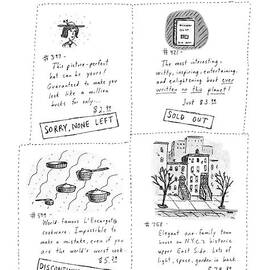 #399-
This picture-perfect
hat can be yours!
Guaranteed to make you
look like a million
bucks for only...
$2.99
SORRY, NONE LEFT
The most interesting,
witty, inspiring, entertaining,
and enlightening book ever
written on this planet!
Just $3.99
SOLD OUT
World-famous L'Escargot®
cookware. Impossible to
make a mistake, even if you
are the world's worst cook.
$5.
DISCONTIN
Elegant one-family town
house on N.Y.C.'s historic
Upper East Side. Lots of
light, space, garden in back.